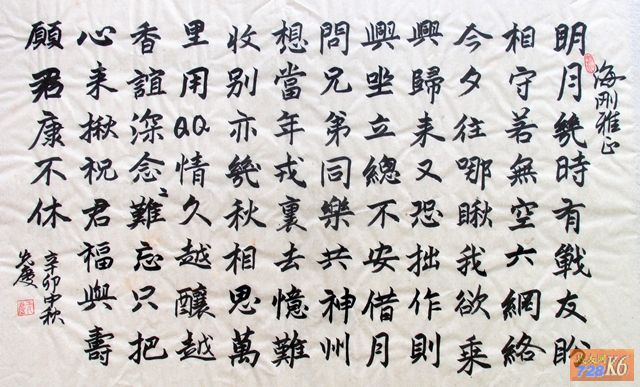 海刚雅正
明月幾時有戰友盼
相守若無空六網絡
今夕往哪瞅我欲乘
興歸来又恐拙作則
興坐立總不安借月
問兄第同樂共神州
想當年戎裏去憶難
收别亦幾秋相思萬
里用QQ情久越釀越
香誼深念〻難忘只把
心来揪祝君福與壽
願君康不休
辛卯中秋
728K6